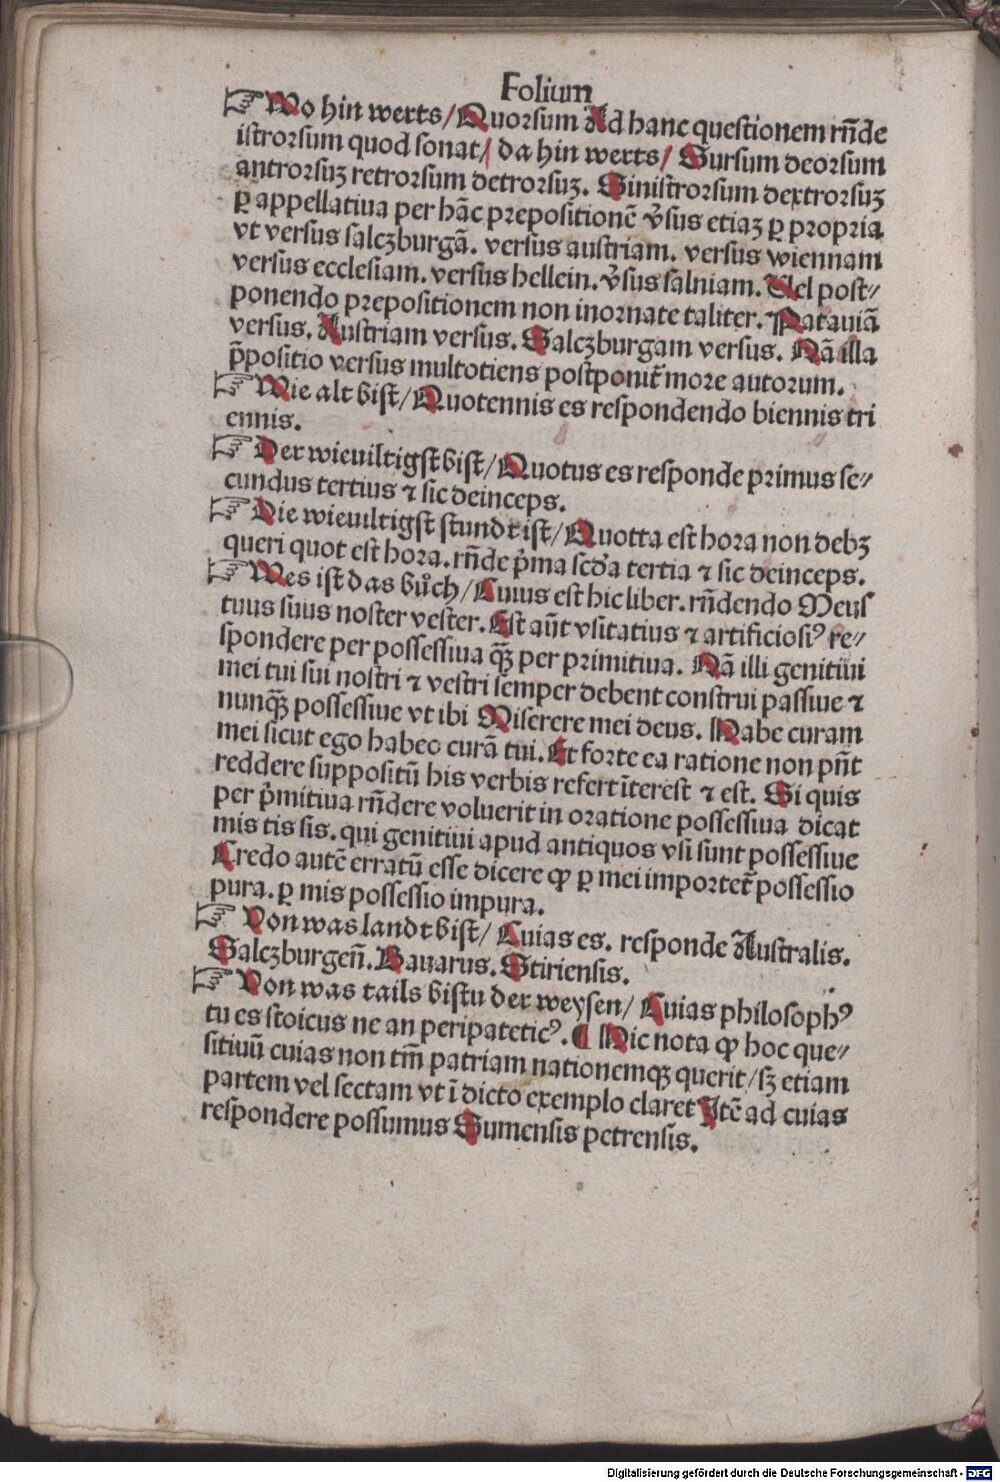 Folium
☞ Wo hin werts/ Quorsum Ad hanc questionem rñde
istrorsum quod sonat/ da hin werts/ Sursum deorsum
antrorsuꝫ retrorsum detrorsuꝫ. Sinistrorsum dextrorsuꝫ
ꝑ appellatiua per hãc prepositionẽ ỽ̃sus etiaꝫ ꝑ propria
vt versus salczburgã. versus austriam. versus wiennam
versus ecclesiam. versus hellein. ỽ̃sus salniam. Uel post⸗
ponendo prepositionem non inornate taliter. Patauiã
versus. Austriam versus. Salczburgam versus. Nã illa
p̃positio versus multotiens postponit᷑ more autorum.
☞ Wie alt bist/ Quotennis es respondendo biennis tri
ennis.
☞ Der wieuiltigst bist/ Quotus es responde primus se⸗
cundus tertius ⁊ sic deinceps.
☞ Die wieuiltigst stundt ist/ Quotta est hora non debꝫ
queri quot est hora. rñde p̓ma scd̓a tertia ⁊ sic deinceps.
☞ Wes ist das bůch/ Cuius est hic liber. rñdendo Meus
tuus suus noster vester. Est aũt vsitatius ⁊ artificiosiꝰ re⸗
spondere per possessiua qꝫ̃ per primitiua. Nã illi genitiui
mei tui sui nostri ⁊ vestri semper debent construi passiue ⁊
nunqꝫ̃ possessiue vt ibi Miserere mei deus. Habe curam
mei sicut ego habeo curã tui. Et forte ea ratione non pñt
reddere suppositũ his verbis refert ĩterest ⁊ est. Si quis
per p̓mitiua rñdere voluerit in oratione possessiua dicat
mis tis sis. qui genitiui apud antiquos vsi sunt possessiue
Credo autẽ erratũ esse dicere ꝙ ꝑ mei importet᷑ possessio
pura. ꝑ mis possessio impura.
☞ Von was landt bist/ Cuias es. responde Australis.
Salczburgeñ. Bauarus. Stiriensis.
☞ Von was tails bistu der weysen/ Cuias philosophꝰ
tu es stoicus ne an peripateticꝰ. ¶ Hic nota ꝙ hoc que⸗
sitiuũ cuias non tm̃ patriam nationemqꝫ querit/ sꝫ etiam
partem vel sectam vt ĩ dicto exemplo claret Itẽ ad cuias
respondere possumus Sumensis petrensis.
Digitalisierung gefördert durch die Deutsche Forschungsgemeinschaft - DFG